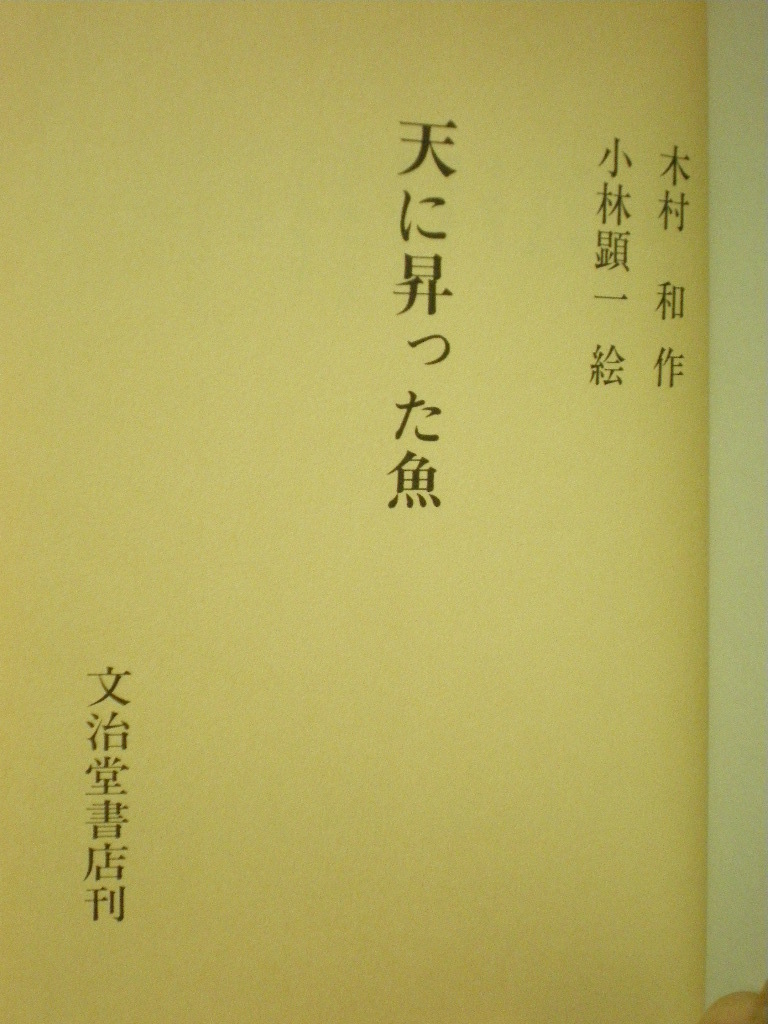 木村 和 作
小林顕一 絵
天に昇った魚
文治堂書店刊